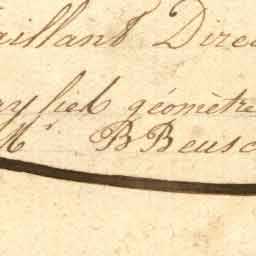 aillant Direc
géomètre
Mr B Beusc